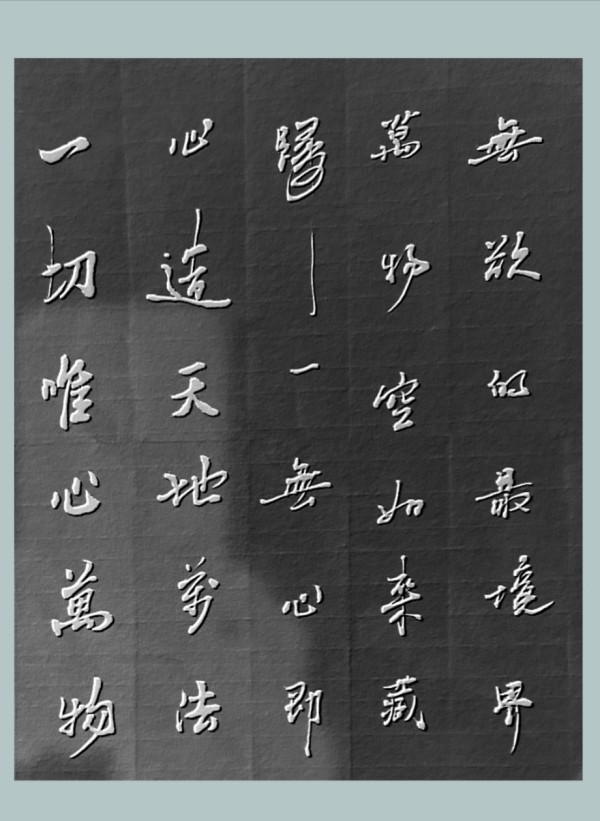 無欲的最境界
萬物空如來藏
一無心即
心造天地萬法
一切唯心萬物